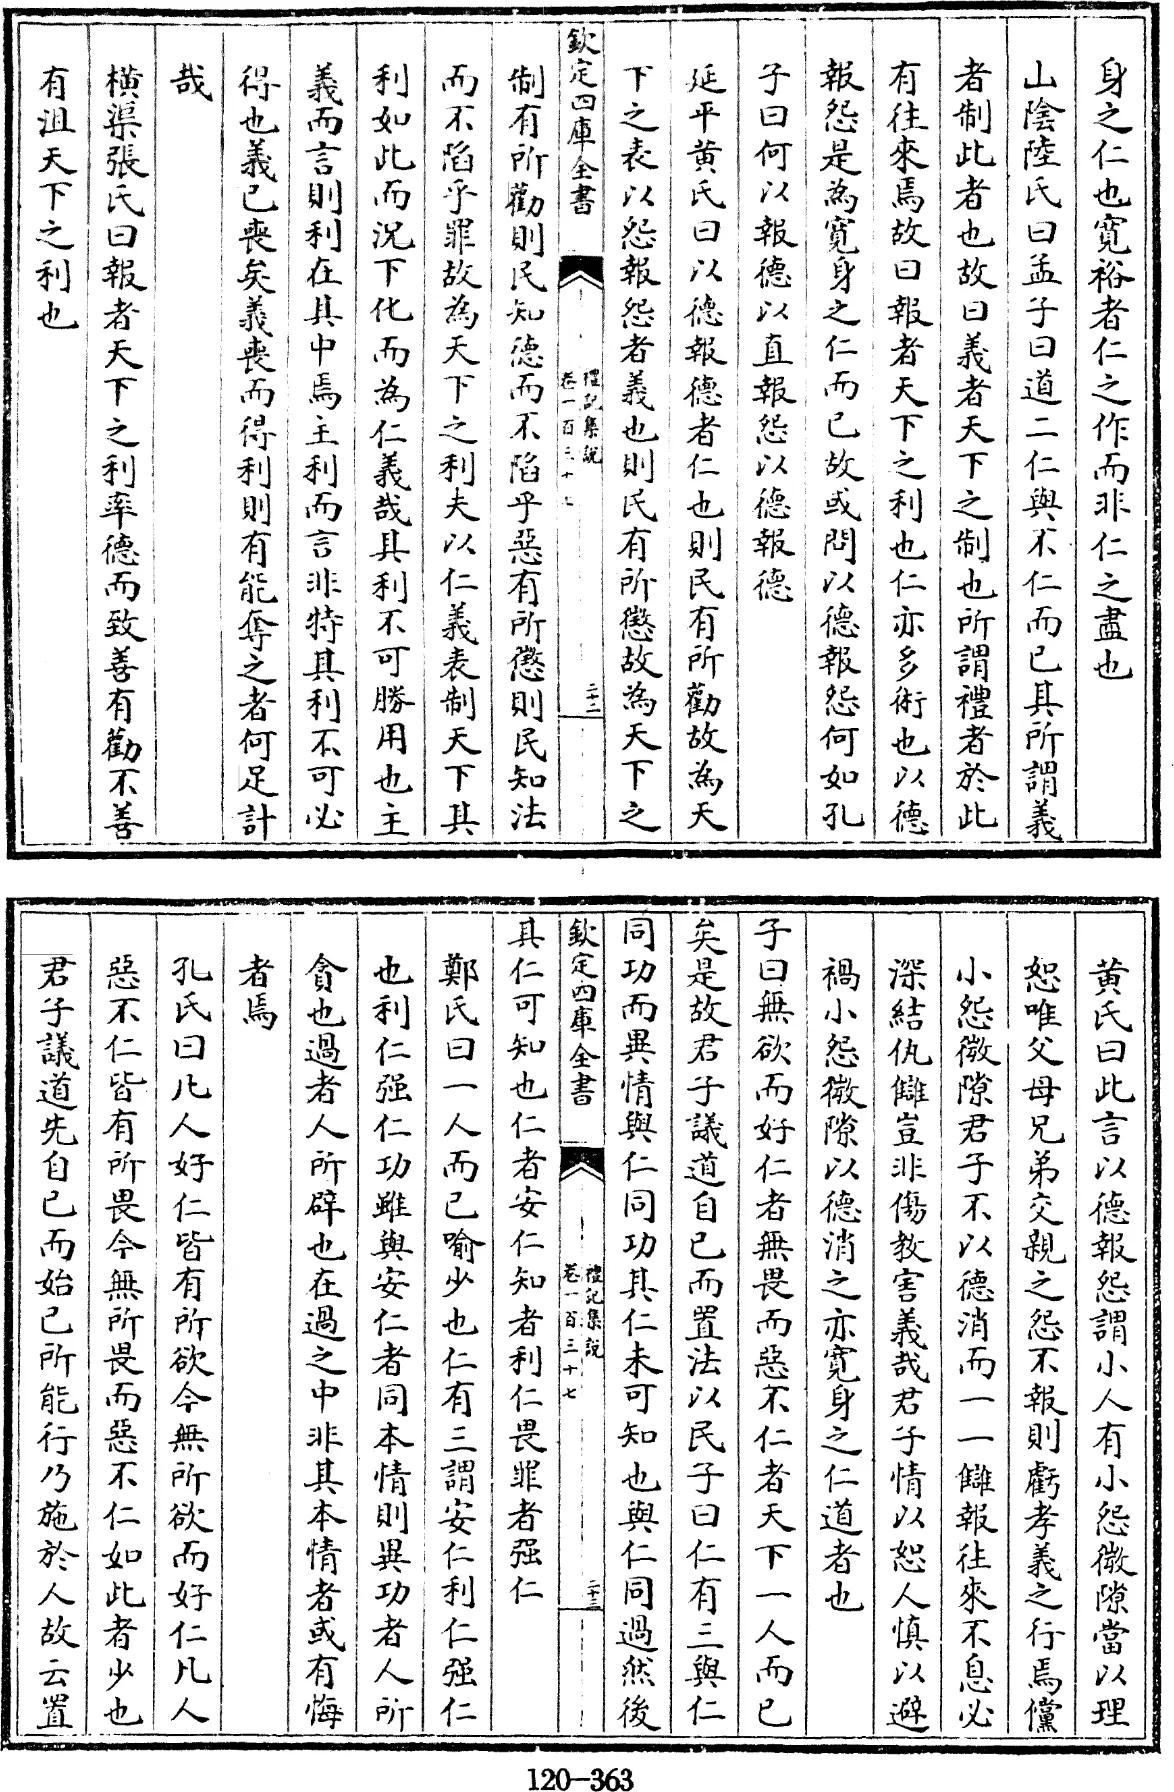 身之仁也寛裕者仁之作而非仁之盡也
山陰陸氏曰孟子曰道二仁與不仁而已其所謂義
者制此者也故曰義者天下之制也所謂禮者於此
有往來焉故曰報者天下之利也仁亦多術也以德
報怨是為寛身之仁而已故或問以德報怨何如孔
子曰何以報德以直報怨以德報德
延平黄氏曰以德報德者仁也則民有所勸故為天
下之表以怨報怨者義也則民有所懲故為天下之
欽定四庫全書
禮記集説
卷一百三十七
二十二
制有所勸則民知德而不陷乎惡有所懲則民知法
而不陷乎罪故為天下之利夫以仁義表制天下其
利如此而況下化而為仁義哉其利不可勝用也主
義而言則利在其中焉主利而言非特其利不可必
得也義已喪矣義喪而得利則有能奪之者何足計
哉
橫渠張氏曰報者天下之利率德而致善有勸不善
有沮天下之利也
黄氏曰此言以德報怨謂小人有小怨微隙當以理
恕唯父母兄弟交親之怨不報則虧孝義之行焉儻
小怨微隙君子不以德消而一一讎報往來不息必
深結仇讎豈非傷教害義哉君子情以恕人慎以避
禍小怨微隙以德消之亦寛身之仁道者也
子曰無欲而好仁者無畏而惡不仁者天下一人而已
矣是故君子議道自己而置法以民子曰仁有三與仁
同功而異情與仁同功其仁未可知也與仁同過然後
欽定四庫全書
禮記集説
卷一百三十七
二十三
其仁可知也仁者安仁知者利仁畏罪者强仁
鄭氏曰一人而已喻少也仁有三謂安仁利仁强仁
也利仁强仁功雖與安仁者同本情則異功者人所
貪也過者人所辟也在過之中非其本情者或有悔
者焉
孔氏曰凡人好仁皆有所欲今無所欲而好仁凡人
惡不仁皆有所畏今無所畏而惡不仁如此者少也
君子議道先自己而始己所能行乃施於人故云置
120-363